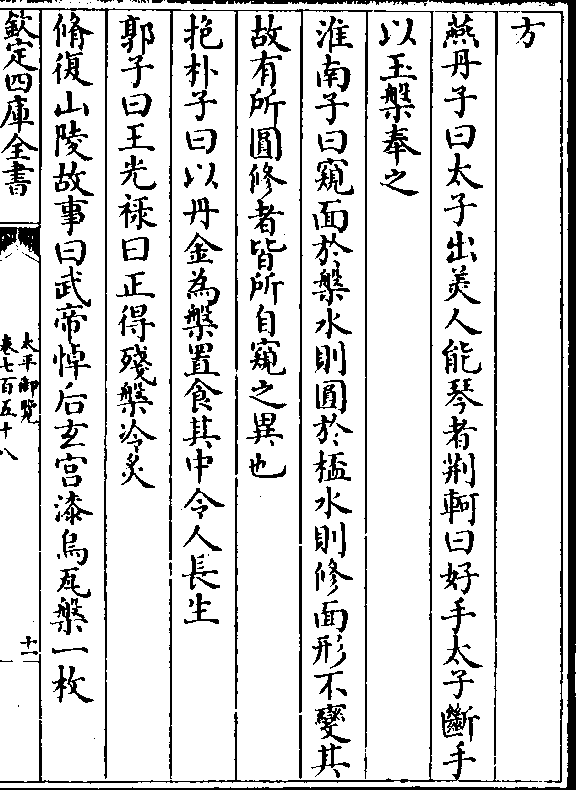 方
燕丹子曰太子出美人能琴者荆軻曰好手太子斷手
以玉槃奉之
淮南子曰窺面於槃水則圓於榼水則修面形不變其
故有所圓修者皆所自窺之異也
抱朴子曰以丹金為槃置食其中令人長生
郭子曰王光禄曰正得殘槃冷炙
脩復山陵故事曰武帝悼后玄宫漆烏瓦槃一枚
欽定四庫全書
太平御覽
卷七百五十八
十一